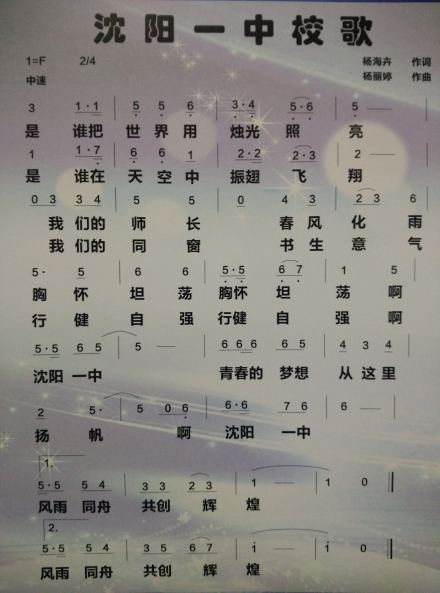 沈阳一中校歌
1=F 2/4 杨海卉 作词
中速 杨丽婷 作曲
3 1·1 5 5 6 3·4 5·6 5
是 谁把 世 界 用 烛光 照 亮
1 1·7 6 6 1 2·2 2·3 2 —
是 谁在 天 空 中 振翅 飞 翔
0 3 3 4 5 5 0 4 3 2 3 6
我 们的 师 长 春 风 化 雨
我 们的 同 窗 书 生 意 气
5· 5 6 6 5·5 6 7 1 5
胸 怀 坦 荡 胸怀 坦 荡 啊
行 健 自 强 行健 自 强 啊
5·5 6 5 5 — 5·5 6 6 4 3 4
沈阳 一中 青春的 梦想 从 这 里
2 5· 5 0 6 6·6 7 6 6 —
扬 帆 啊 沈阳 一中
1.
5·5 5 4 3 3 2 3 1 — 1 0
风雨 同舟 共创 辉 煌
2.
5·5 5 4 3 5 6 7 1 — 1 0
风雨 同舟 共创 辉 煌